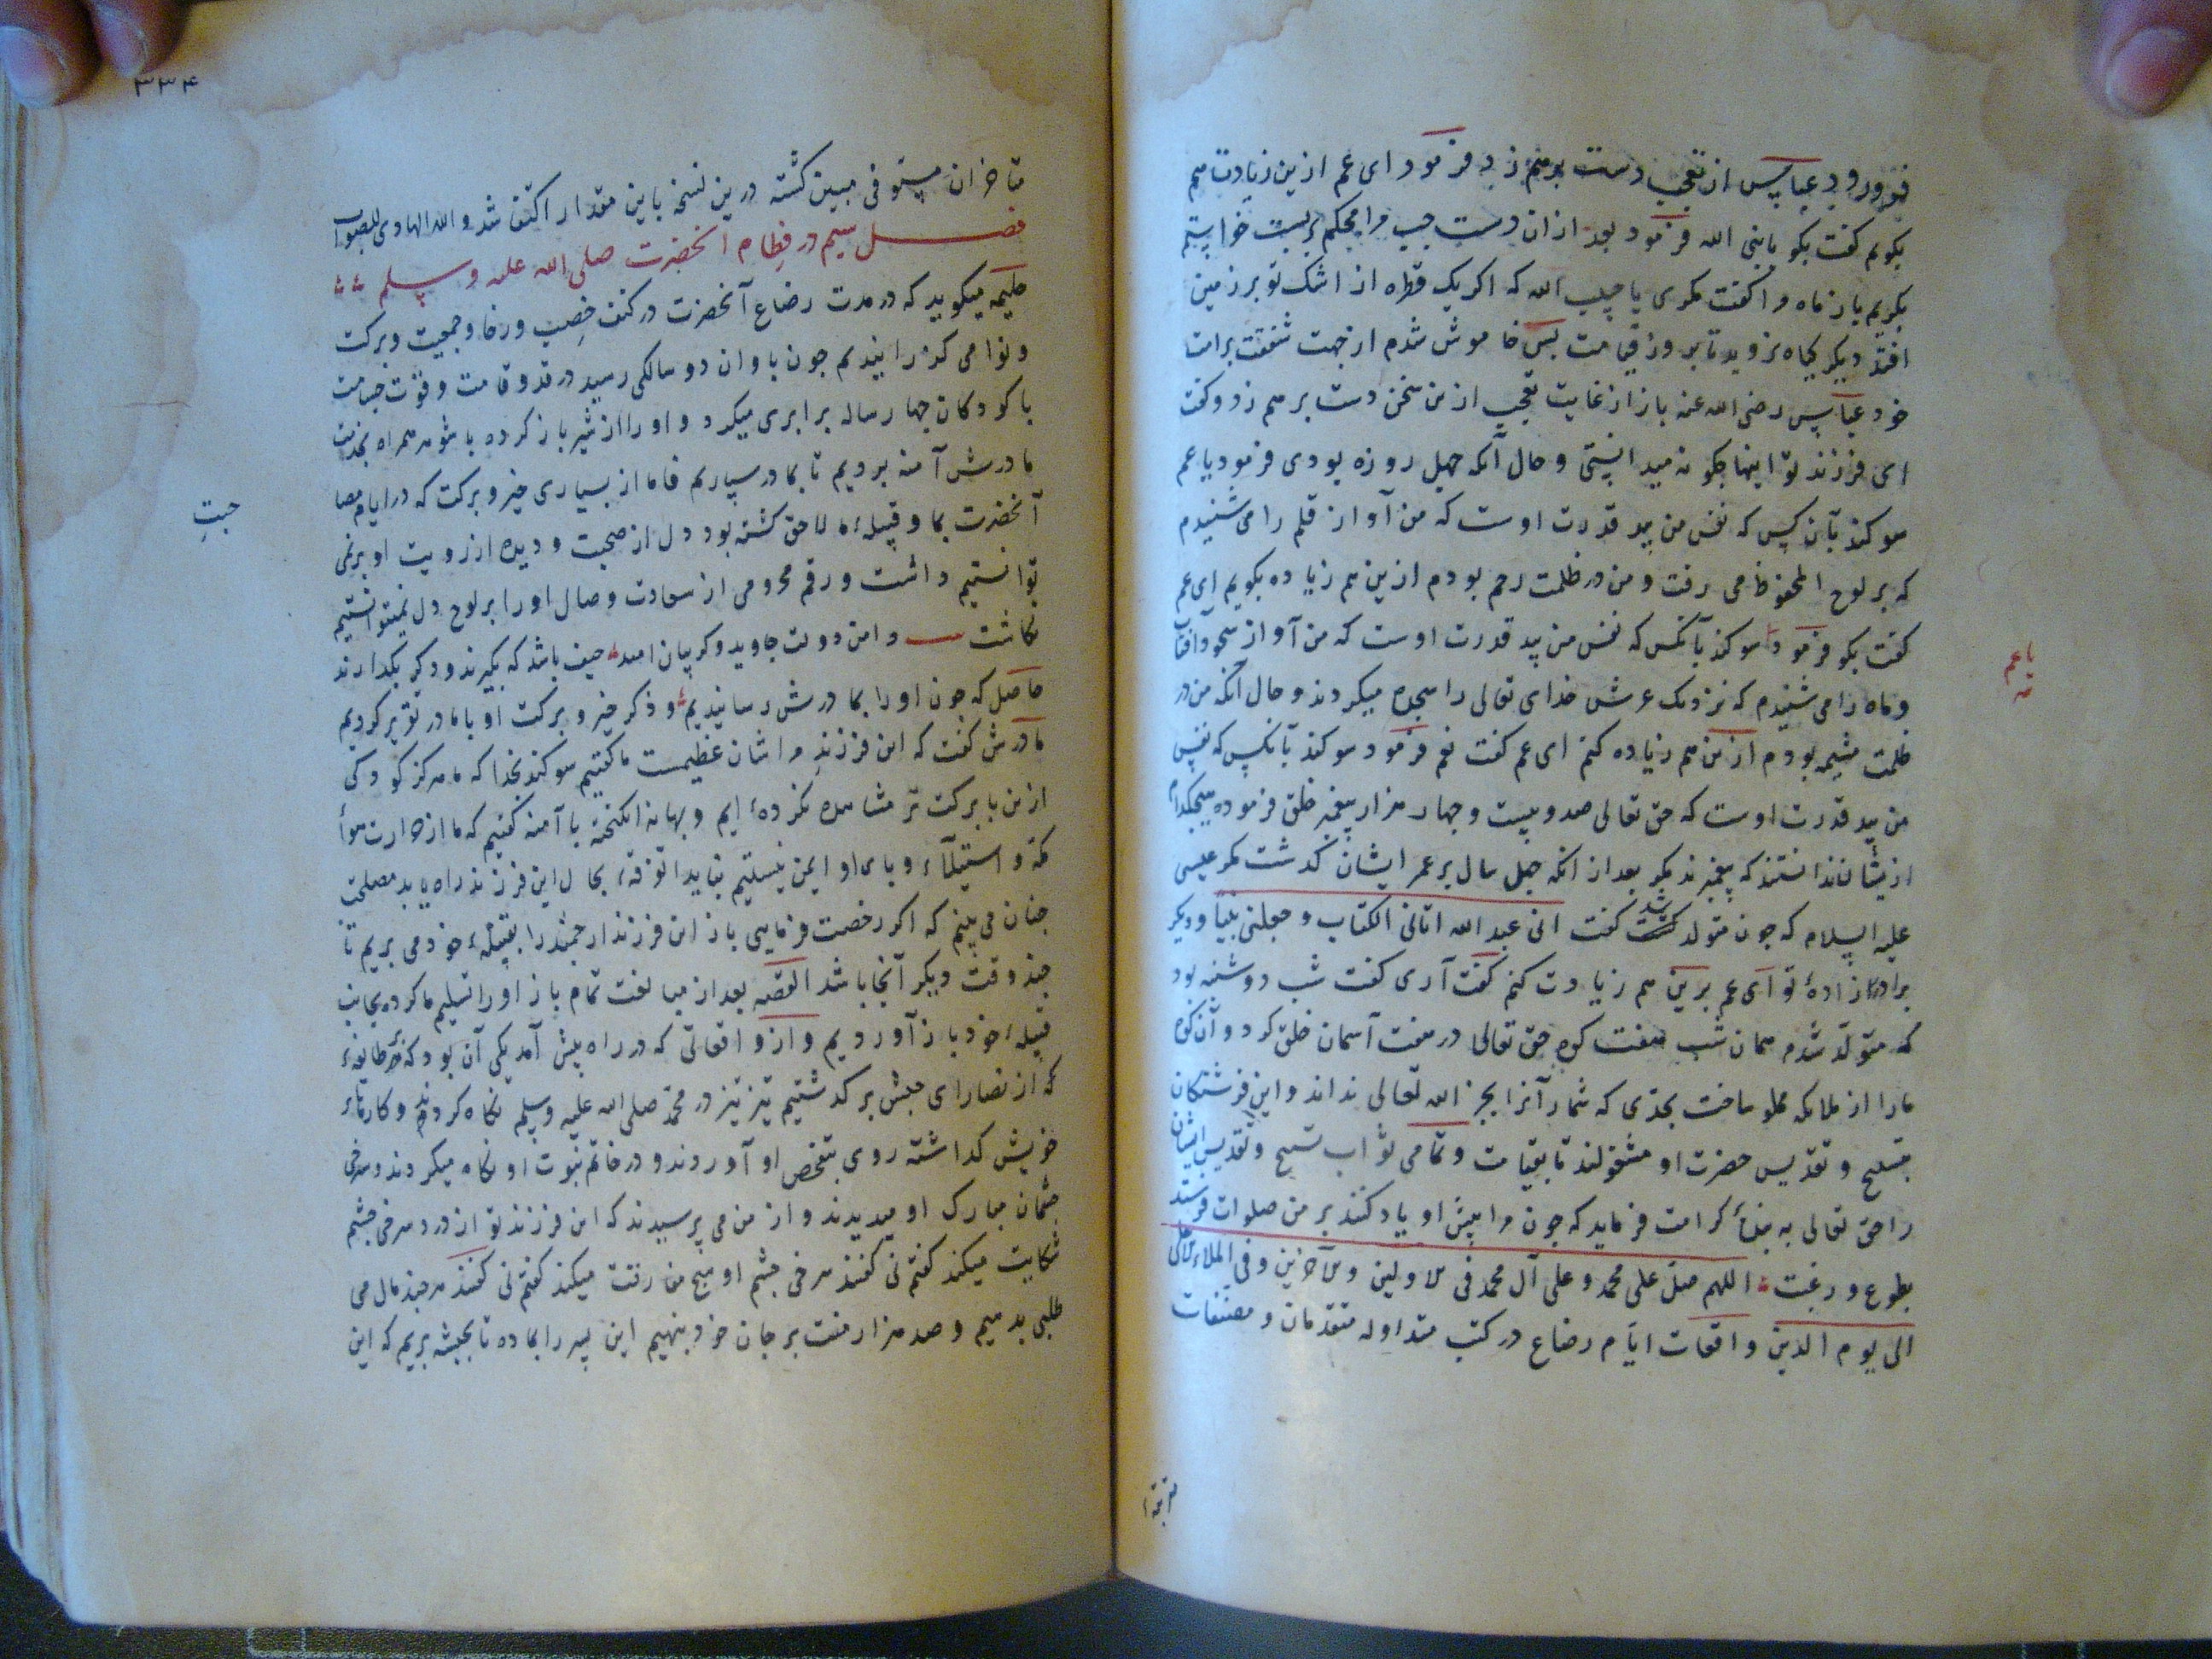 فرو رود عباس از تعجب دست بر هم زد فرمود ای عم ازین زیادت هم
بکویم کفت بکو یا نبی الله فرمود بعد ازان دست چپ مرا محکم بربست خواستم
بکریم باز ماه مرا کفت مکری یا حبیب الله که اکر یک قطره از اشک تو بر زمین
افتد دیکر کیاه نروید تا بروز قیامت پس خاموش شدم از جهت شفقت بر امت
خود عباس رضی الله عنه باز از غایت تعجب ازین سخن دست بر هم زد و کفت
ای فرزند تو اینها چکونه میدانستی و حال آنکه چهل روزه بودی فرمود یا عم
سوکند بآن کس که نفس من بید قدرت اوست که من آواز قلم را می شنیدم
که بر لوح المحفوظ می رفت و من در ظلمت رحم بودم ازین هم زیاده بکویم ای عم
کفت بکو فرمود سوکند بآنکس که نفس من بید قدرت اوست که من آواز سجود آفتاب
یا عم
و ماه را می شنیدم که نزدیک عرش خدای تعالی را سجده میکردند و حال آنکه من در
ظلمت مشیمه بودم ازین هم زیاده کنم ای عم کفت نعم فرمود سوکند بآنکس که نفس
من بید قدرت اوست که حق تعالی صد و بیست و چهار هزار پیغمبر خلق فرموده هیچکدام
ازیشان ندانستند که پیغمبرند مکر بعد از انکه چهل سال بر عمر ایشان کذشت مکر عیسی
علیه السلام که چون متولد شد کفت انی عبد الله اتانی الکتاب و جعلنی نبیا و دیکر
برادرزادۀ تو ای عم برین هم زیادت کنم کفت آری کفت شب دوشنبه بود
که متولد شدم همان شب هفت کوه حق تعالی در هفت آسمان خلق کرد و آن کوه
ها را از ملائکه مملو ساخت بحدی که شمار آنرا بجز الله تعالی نداند و این فرشتکان
بتسبیح و تقدیس حضرت او مشغولند تا بقیامت و تمامی ثواب تسبیح و تقدیس ایشان
را حق تعالی به بندۀ کرامت فرماید که چون مرا پیش او یاد کنند بر من صلوات فرستد
بطوع و رغبت اللهم صل علی محمد و علی آل محمد فی الاولین و الآخرین و فی الملاء الاعلی
الی یوم الدین واقعات ایام رضاع در کتب متداوله متقدمان و مصنفات
۳۳۴
متاخران مستوفی مبین کشته درین نسخه باین مقدار اکتفا شد و الله الهادی للصواب
فصل سیم در فطام آنحضرت صلی الله علیه و سلم
حلیمه میکوید که در مدت رضاع آنحضرت در کنف خصب و رخا و جمعیت و برکت
و نوا می کذرانیدیم چون باوان دو سالکی رسید در قد و قامت و قوت جسامت
با کودکان چهار ساله برابری میکرد و او را از شیر باز کرده با شوهر همراه بخدمت
مادرش آمنه بردیم تا بمادر سپاریم فاما از بسیاری خیر و برکت که در ایام مصا
حبت
آنحضرت بما و قبیلۀ ما لاحق کشته بود دل از صحبت و دیده از رویت او بر نمی
توانستیم داشت و رقم محرومی از سعادت وصال او را بر لوح دل نمیتوانستیم
نکاشت دامن دولت جاوید و کریبان امید حیف باشد که بکیرند و دکر بکذارند
حاصل که چون او را بمادرش رسانیدیم و ذکر خیر و برکت او با مادر تقریر کردیم
مادرش کفت که این فرزند مرا شان عظیمست ما کفتیم سوکند بخدا که ما هرکز کودکی
ازین با برکت تر مشاهده نکرده ایم و بهانه انکیخته با آمنه کفتیم که ما از حرارت هوأ
مکه و استیلآء وبای او ایمن نیستیم نباید که بحال این فرزند راه یابد مصلحت
چنان می بینم که اکر رخصت فرمایی باز این فرزند ارجمند را بقبیلۀ خود می بریم تا
چند وقت دیکر آنجا باشد القصه بعد از مبالغت تمام باز او را تسلیم ما کرده بجانب
قبیلۀ خود باز آوردیم و از واقعاتی که در راه پیش آمد یکی آن بود که بر طایفۀ
که از نصارای حبش بر کذشتیم تیز تیز در محمد صلی الله علیه و سلم نکاه کردند و کارهاء
خویش کذاشته روی بتفحص او آوردند و در خاتم نبوت او نکاه میکردند و سرخی
چشمان مبارک او میدیدند و از من می پرسیدند که این فرزند تو از درد سرخی چشم
شکایت میکند کفتم نی کفتند سرخی چشم او هیچ مفارقت میکند کفتم نی کفتند هر چند مال می
طلبی بدهیم و صد هزار منت بر جان خود بنهیم این پسر را بما ده تا بحبشه بریم که این